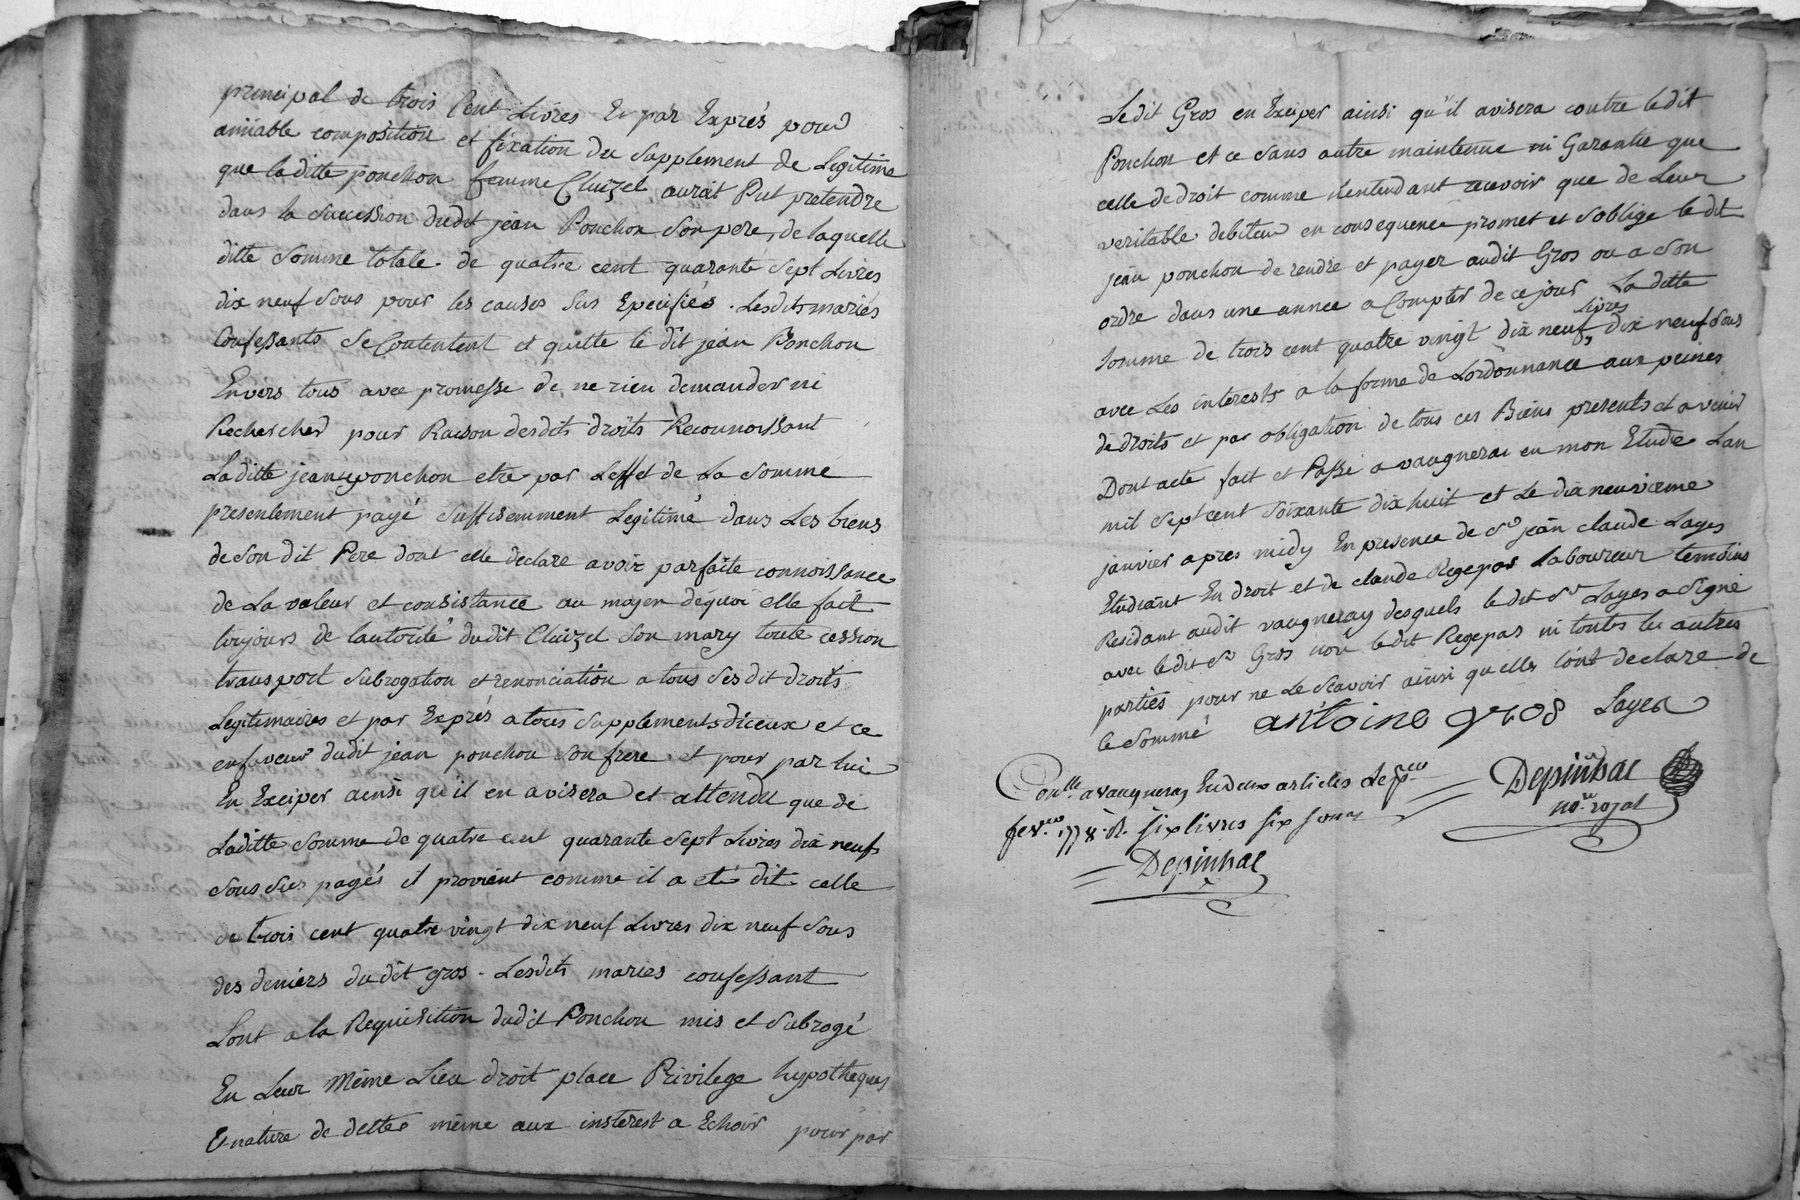 principal de trois Cent Livres Et par Exprés pour
amiable composition et fixation du Supplement de Legitime
que laditte ponchon femme Cluizel auroit Put pretendre
dans la Succession dudit jean Ponchon Son pere, de laquelle
ditte Somme totale de quatre cent quarante Sept Livres
dix neuf Sous pour les causes Sus Epecifiés. Lesdits mariés
Confessants Se Contentent et quitte le dit jean Ponchon
Envers tous avec promesse de ne rien demander ni
Rechercher pour Raison desdits droits Reconnoissant
Laditte jeane ponchon etre par Leffet de La Somme
presentement payé Suffisemment Legitimé dans Les biens
de Son dit Pere dont elle declare avoir parfaite connoissance
de La valeur et consistance au moyen dequoi elle fait
toujours de lautorité dudit Cluizel Son mary toute cession
transport Subrogation et renonciation a tous Ses dit droits
Legitimaires et par Exprés a tous Supplements diceux et ce
enfaveur dudit jean ponchon Son frere et pour par lui
En Exciper ainsi qu'il en avisera et attendu que de
Laditte Somme de quatre cent quarante Sept Livres dix neuf
Sous Sus payés il provient comme il a eté dit celle
de trois cent quatre vingt dix neuf Livres dix neuf Sous
des deniers dudit gros. Lesdits mariés confessant
Lont a la Requisition dudit Ponchon mis et Subrogé
En Leur Même Lieu droit place Privilege hypotheques
Et nature de dettes même aux insterest a Echoir pour par
Ledit Gros en Exciper ainsi qu'il avisera contre ledit
Ponchon et ce Sans autre maintenue ni Garantie que
celle de droit comme n'entendant recevoir que de Leur
veritable debiteur en consequence promet et Soblige ledit
jean ponchon de rendre et payer audit Gros ou a Son
ordre dans une année a Compter de ce jour La ditte
Somme de trois cent quatre vingt dix neuf livres dix neuf Sous
avec Les interests a la forme de Lordonnance aux peines
de droits et par obligation de tous ces Biens presents et avenir
Dont acte fait et Passé a vaugneray en mon Etude Lan
mil Sept cent Soixante dix huit et Le dix neuvieme
janvier apres midy En presence de Sr jean claude Layes
Etudiant En droit et de claude Regepas Laboureur temoins
Residant audit vaugneray desquels ledit Sr Layes a Signé
avec ledit Sr Gros non ledit Regepas ni toutes les autres
parties pour ne Le Scavoir ainsi quelles lont declare de
ce Sommé antoine gros Layes
Depinhac
nore royal
Conllé a vaugneray En deux articles Le per
fevrer 1778. R. six livres six sous
Depinhac